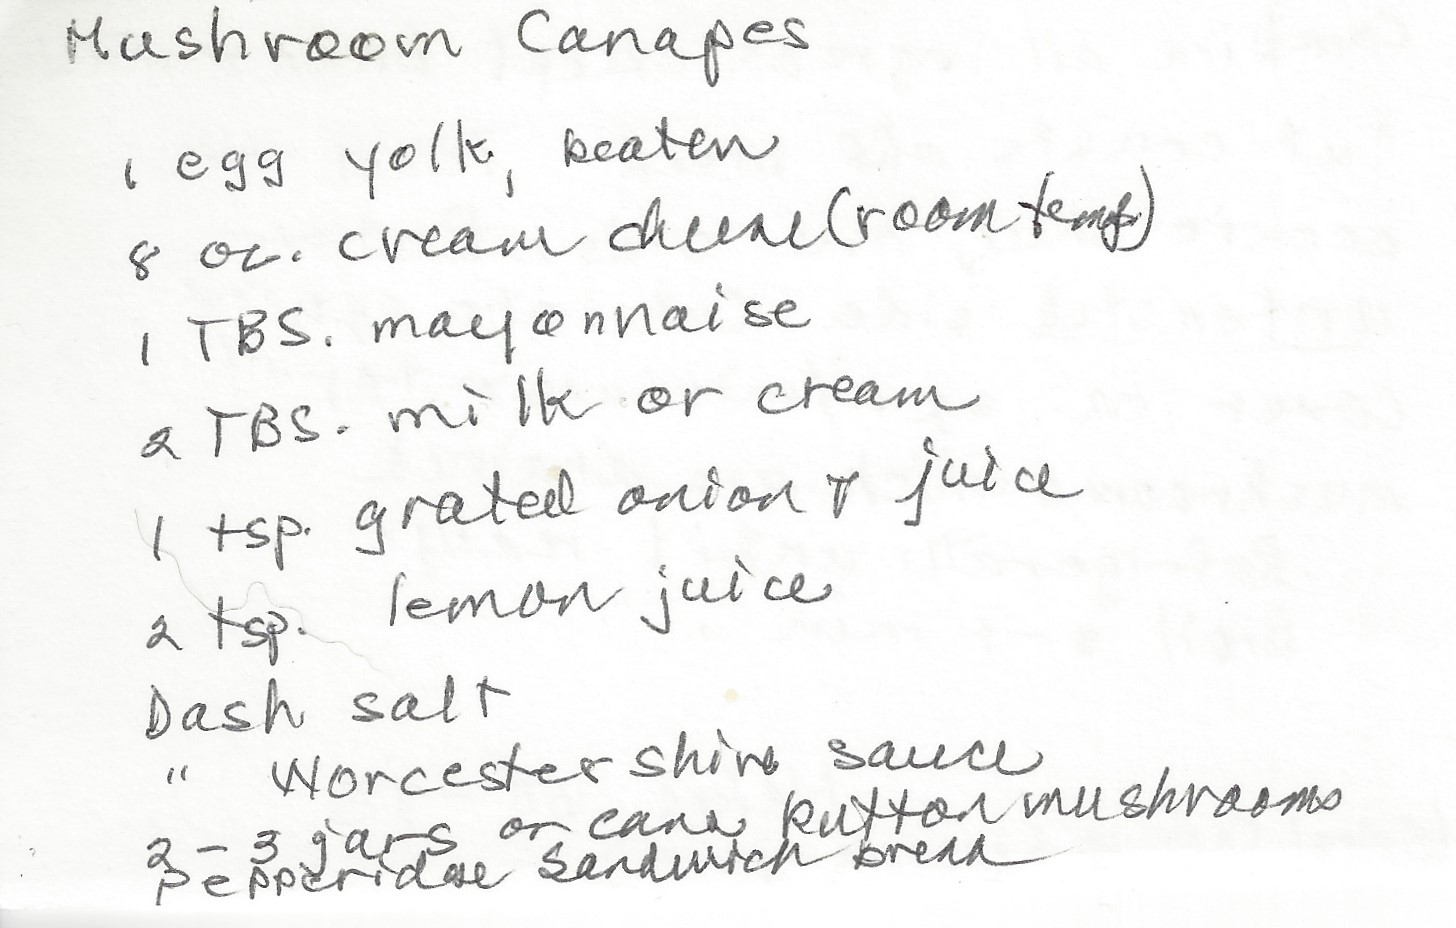 Mushroom Canapes
1 egg yolk, beaten
8 oz. cream cheese (room temp)
1 TBS. mayonnaise
2 TBS. milk or cream
1 tsp. grated onion & juice
2 tsp. lemon juice
Dash salt
" Worcestershire sauce
2-3 jars or cans button mushrooms
Pepperidge Sandwich bread